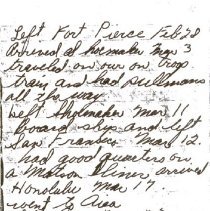 Left Fort Pierce Feb 28
Arrived at Shoemaker Mar 3
traveled on our on troop
train and had pullmans
all the way.
Left Shoemaker Mar 11
board ship and left
San Francisco Mar 12.
had good quarters on
a Matson Liner arrived
Honolulu Mar 17.
went to Aiea